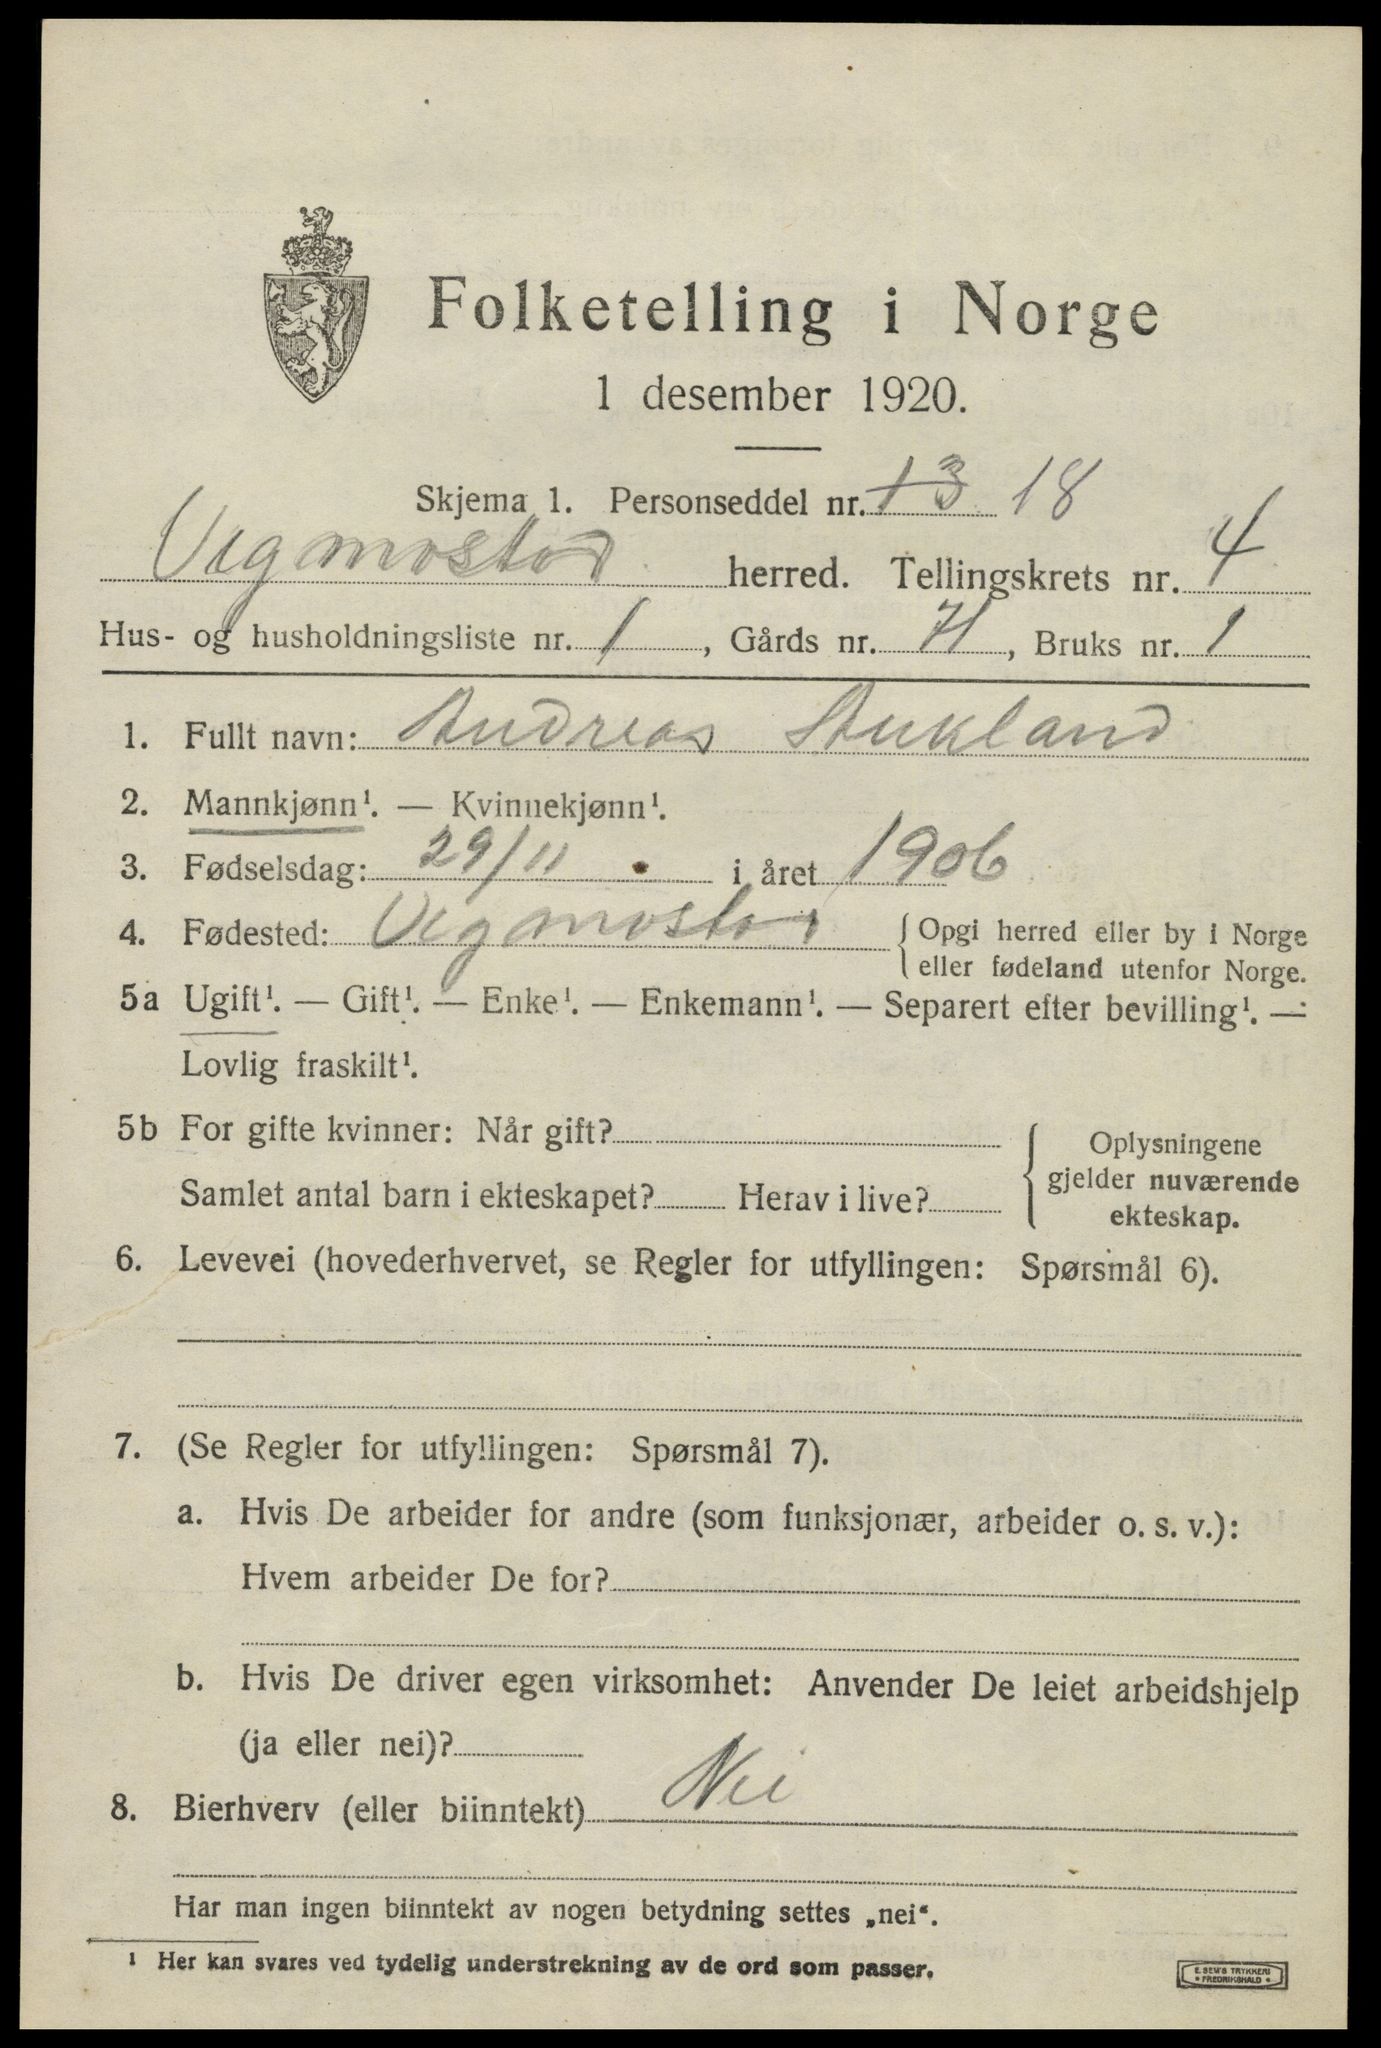 Folketelling i Norge
1 desember 1920.
Skjema 1. Personseddel nr. 13 18
Vegmostad herred. Tellingskrets nr. 4
Hus- og husholdningsliste nr. 1, Gårds nr. 71, Bruks nr. 1
1. Fullt navn: Andreas Aukland
2. Mannkjønn¹. — Kvinnekjønn¹.
3. Fødselsdag: 29/11 i året 1906
4. Fødested: Vegmostad { Opgi herred eller by i Norge
eller fødeland utenfor Norge.
5a Ugift¹. — Gift¹. — Enke¹. — Enkemann¹. — Separert efter bevilling¹. —
Lovlig fraskilt¹.
5b For gifte kvinner: Når gift?
Samlet antal barn i ekteskapet? Herav i live?
{ Oplysningene
gjelder nuværende
ekteskap.
6. Levevei (hovederhvervet, se Regler for utfyllingen: Spørsmål 6).
7. (Se Regler for utfyllingen: Spørsmål 7).
a. Hvis De arbeider for andre (som funksjonær, arbeider o. s. v.):
Hvem arbeider De for?
b. Hvis De driver egen virksomhet: Anvender De leiet arbeidshjelp
(ja eller nei)?
8. Bierhverv (eller biinntekt) Nei
Har man ingen biinntekt av nogen betydning settes „nei“.
¹ Her kan svares ved tydelig understrekning av de ord som passer.
E. SEM'S TRYKKERI
• FREDRIKSHALD •